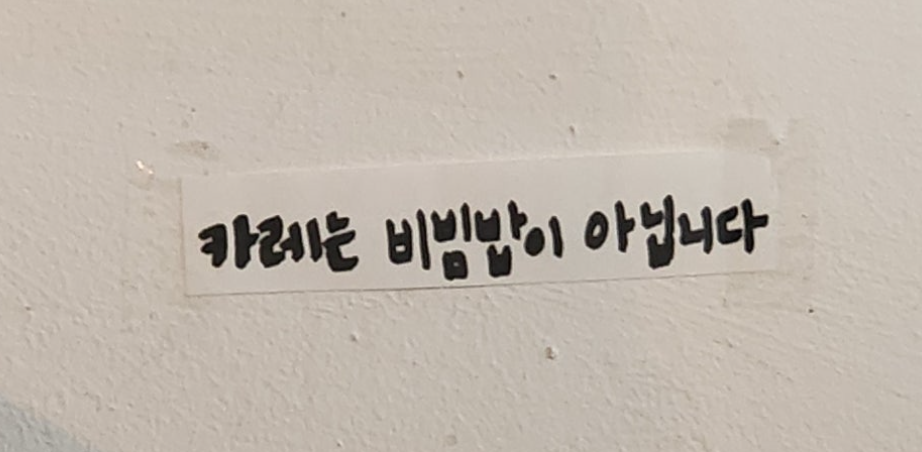 카레는 비빔밥이 아닙니다